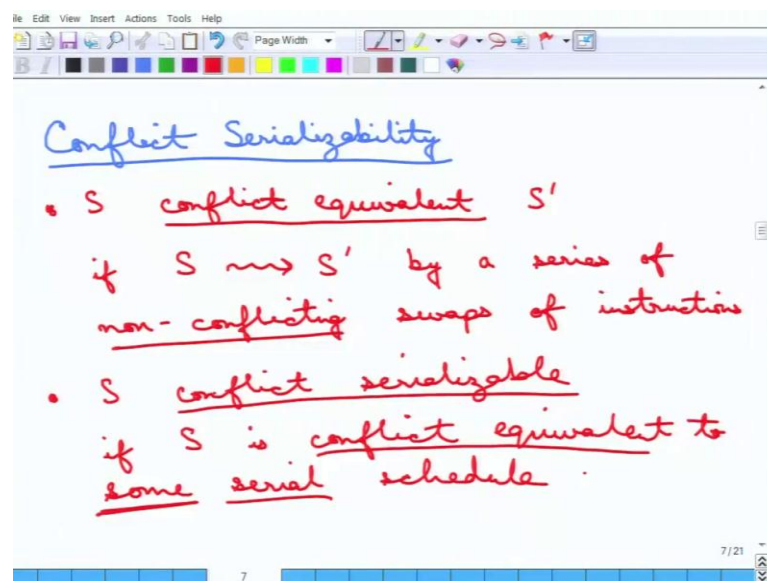 ile Edit View Insert Actions Tools Help
Page Width
B I
Conflict Serializability
• S conflict equivalent S'
if S ⇝ S' by a series of
non-conflicting swaps of instructions
• S conflict serializable
if S is conflict equivalent to
some serial schedule.
7/21
7